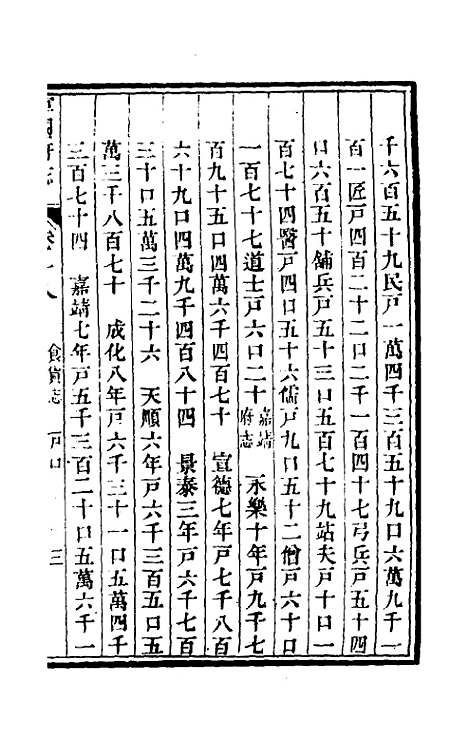 千六百五十九民戸一萬四千三百五十九口六萬九千一
百一匠戸四百二十二口二千一百四十七弓兵戸五十四
口六百五十舖兵戸五十三口五百七十九站夫戸十口一
百七十四醫戸四口五十六儒戸九口五十二僧戸六十口
一百七十七道士戸六口二十嘉靖府志　永樂十年戸九千七
百九十五口四萬六千四百七十　宣德七年戸七千八百
六十九口四萬九千四百八十四　景泰三年戸六千七百
三十口五萬三千二十六　天順六年戸六千三百五口五
萬三千八百七十　成化八年戸六千三十一口五萬四千
三百七十四　嘉靖七年戸五千三百二十口五萬六千一
國府志　卷十八　食貨志　戸口　三